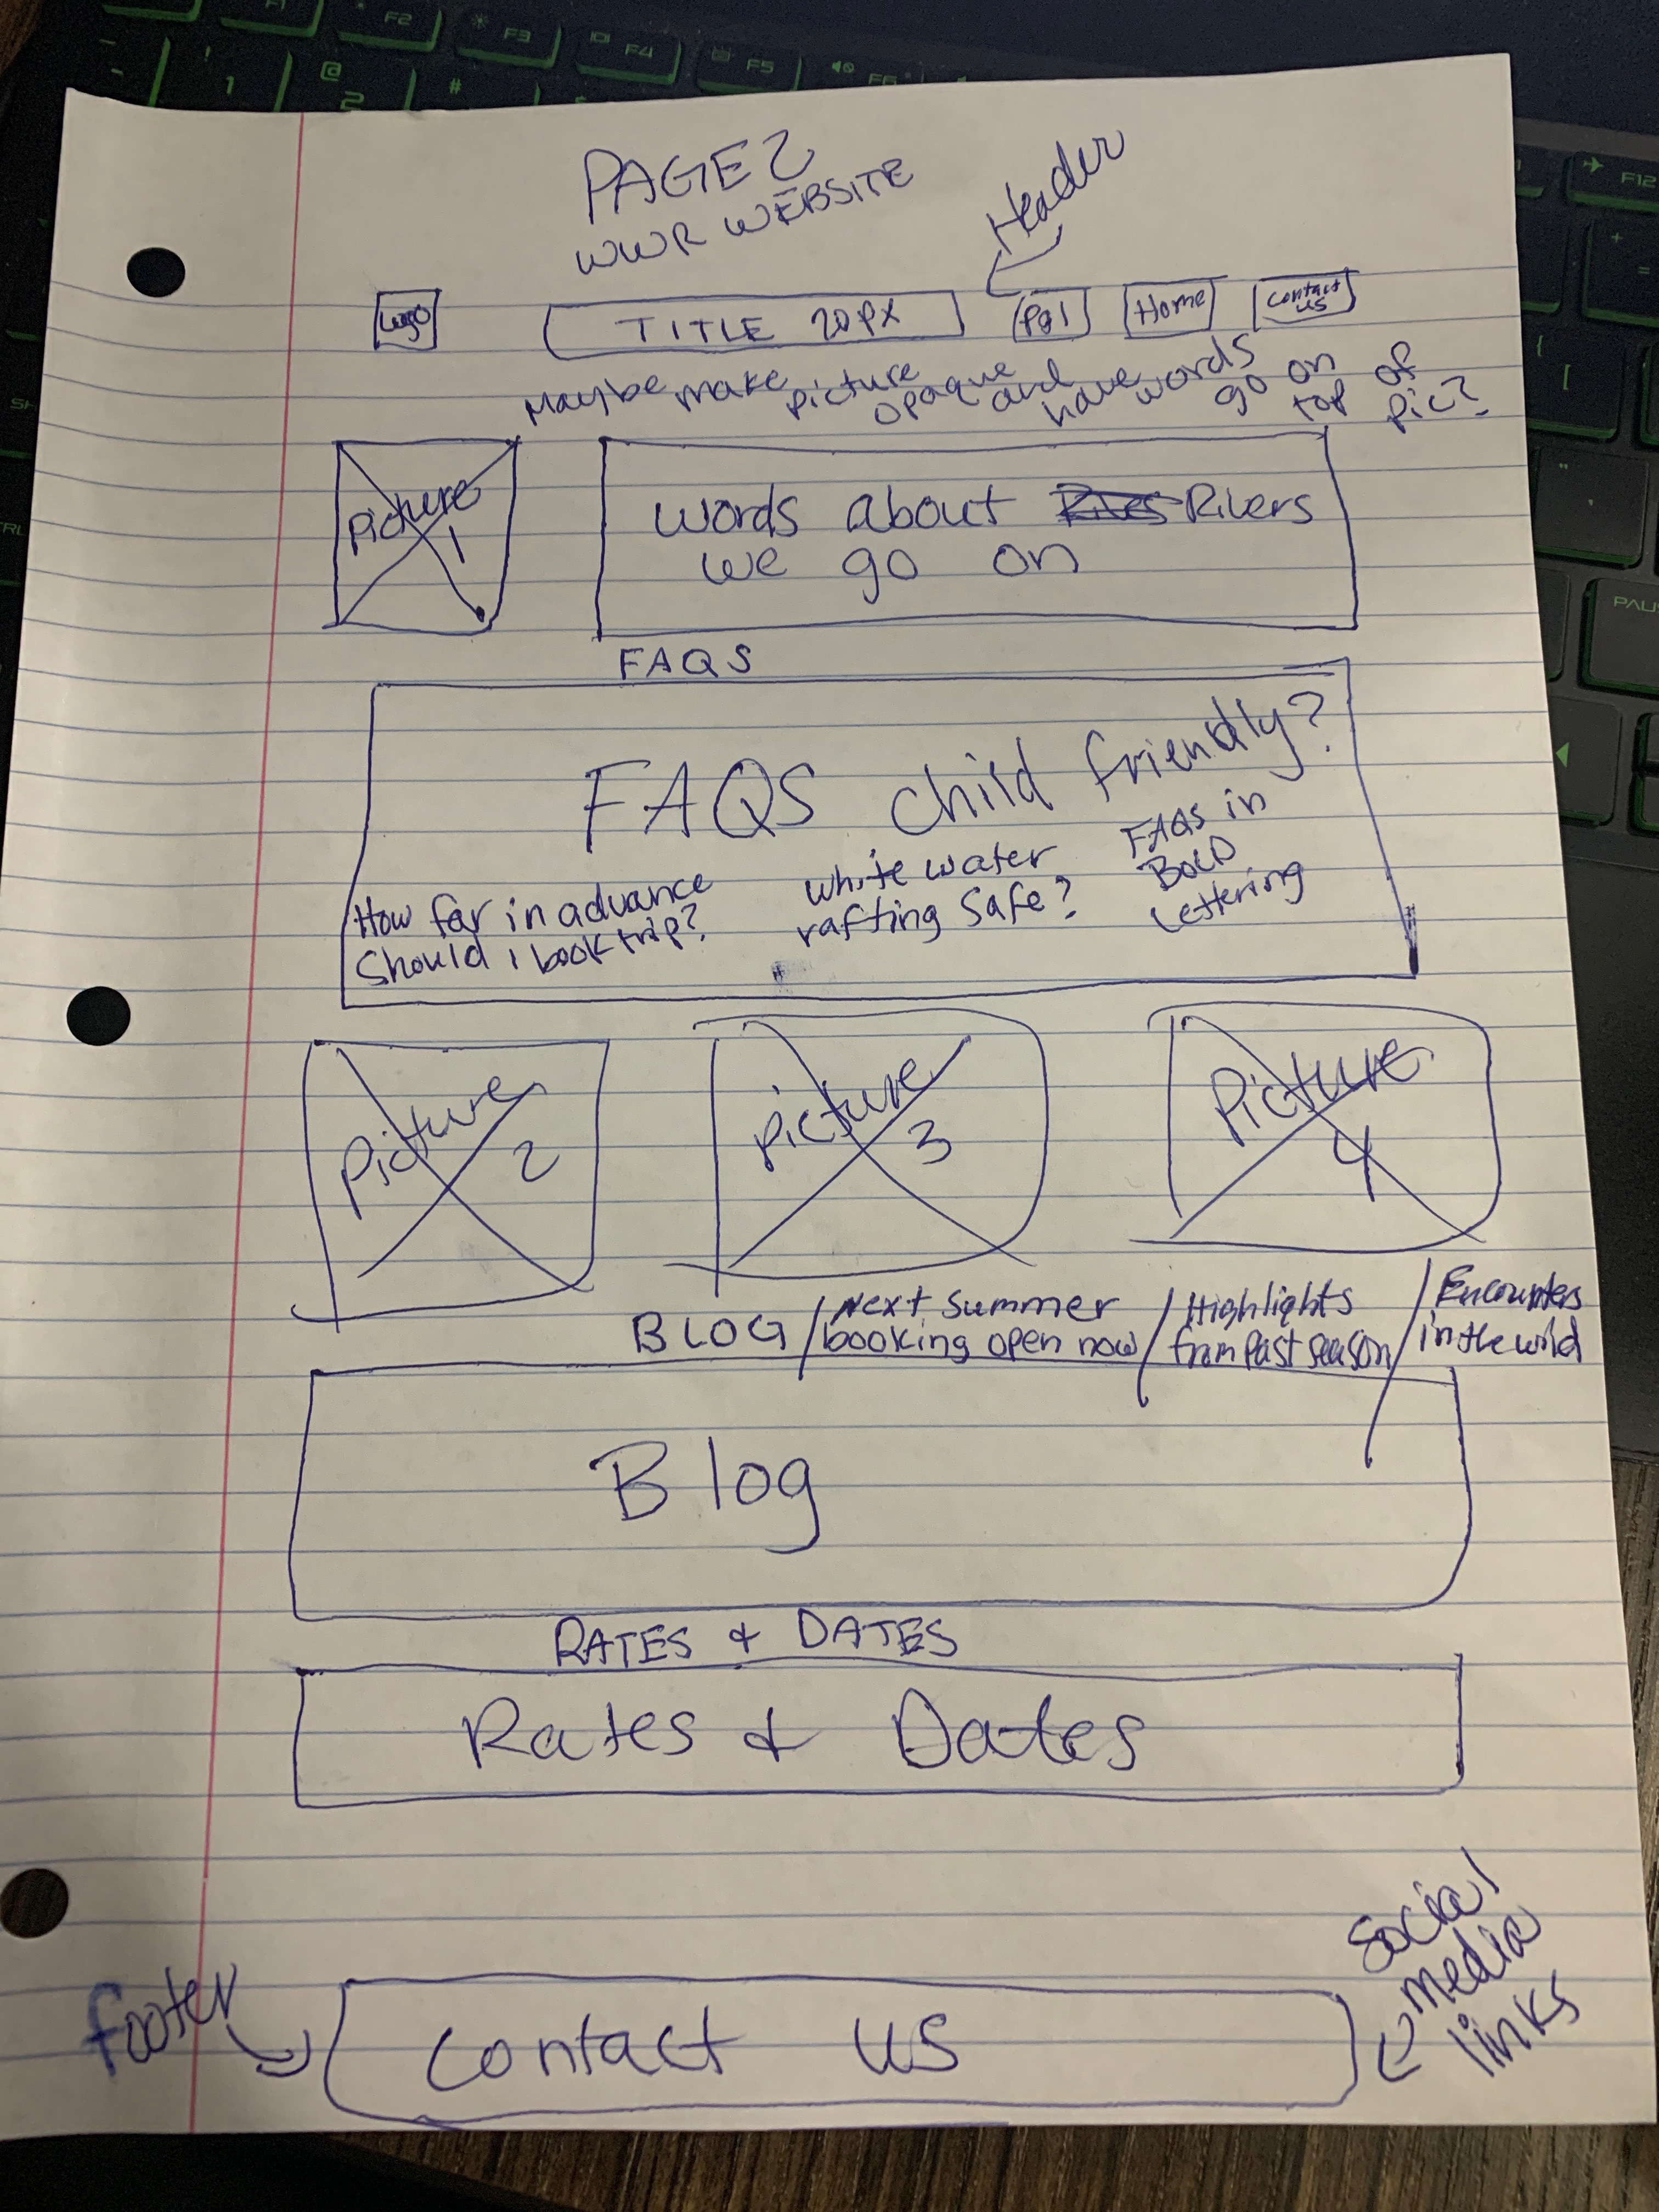 PAGE 2
WWR WEBSITE
Header
Logo
TITLE 20PX
Pg1
Home
Contact
us
Maybe make picture opaque and have words go on top of pic?
Picture
1
words about Rivers
we go on
FAQS
FAQS child friendly?
How far in advance
Should i book trip?
white water
rafting safe?
FAQs in
BOLD
Lettering
Picture
2
picture
3
Picture
4
BLOG / Next summer
booking open now / Highlights
from past season / Encounters
in the wild
Blog
RATES & DATES
Rates & Dates
footer
contact us
Social
media
links
F1
F2
F3
F4
F5
F6
F12
1
@
2
#
PAUS